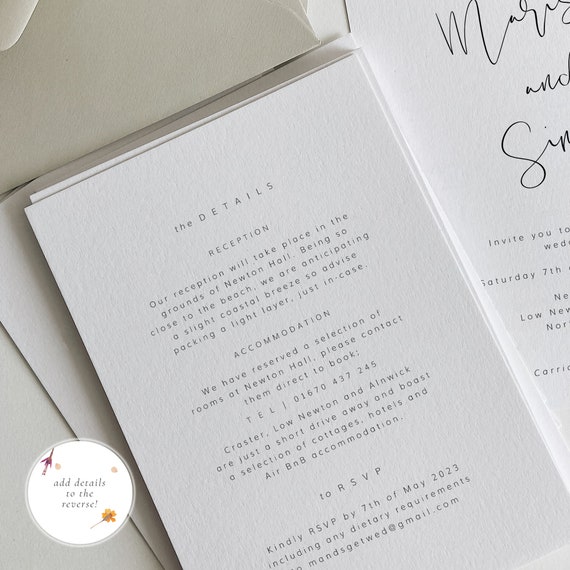 the DETAILS
RECEPTION
Our reception will take place in the
grounds of Newton Hall. Being so
close to the beach, we are anticipating
a slight coastal breeze so advise
packing a light layer, just in-case.
ACCOMMODATION
We have reserved a selection of
rooms of Newton Hall, please contact
them direct to book;
TEL | 01670 437 245
Craster, Low Newton and Alnwick
are just a short drive away and boast
a selection of cottages, hotels and
Air BnB accommodation.
to RSVP
Kindly RSVP by 7th of May 2023
including any dietary requirements
mandsgetwed@gmail.com
and
Invite you to
Saturday 7th
Low New
add details
to the
reverse!